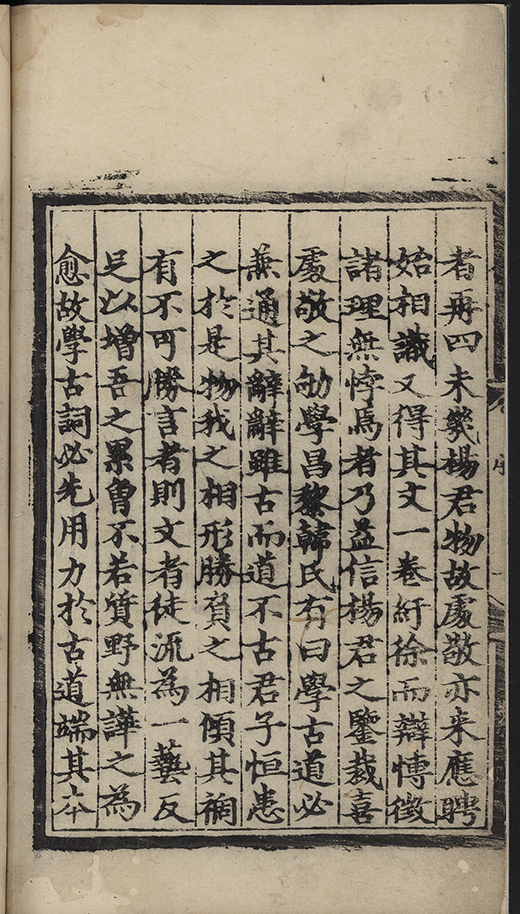 者再四未幾楊君物故處敬亦来應聘
始相識又得其文一卷紆徐而辯愽徵
諸理無悖焉者乃益信楊君之鑒裁喜
處敬之劬學昌黎韓氏有曰學古道必
兼通其辭辭雖古而道不古君子恒患
之於是物我之相形勝負之相傾其褊
有不可勝言者則文者徒流為一藝反
足以增吾之累曾不若質野無譁之為
愈故學古詞必先用力於古道端其本
序